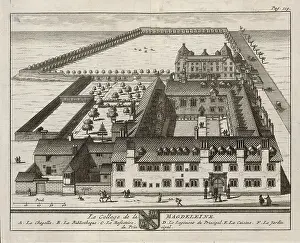 Pag. 119.
Le College de la MAGDELEINE.
A. La Chapelle. B. La Bibliotheque. C. Le Refectoire. D. Le Logement du Principal. E. La Cuisine. F. Le Jardin